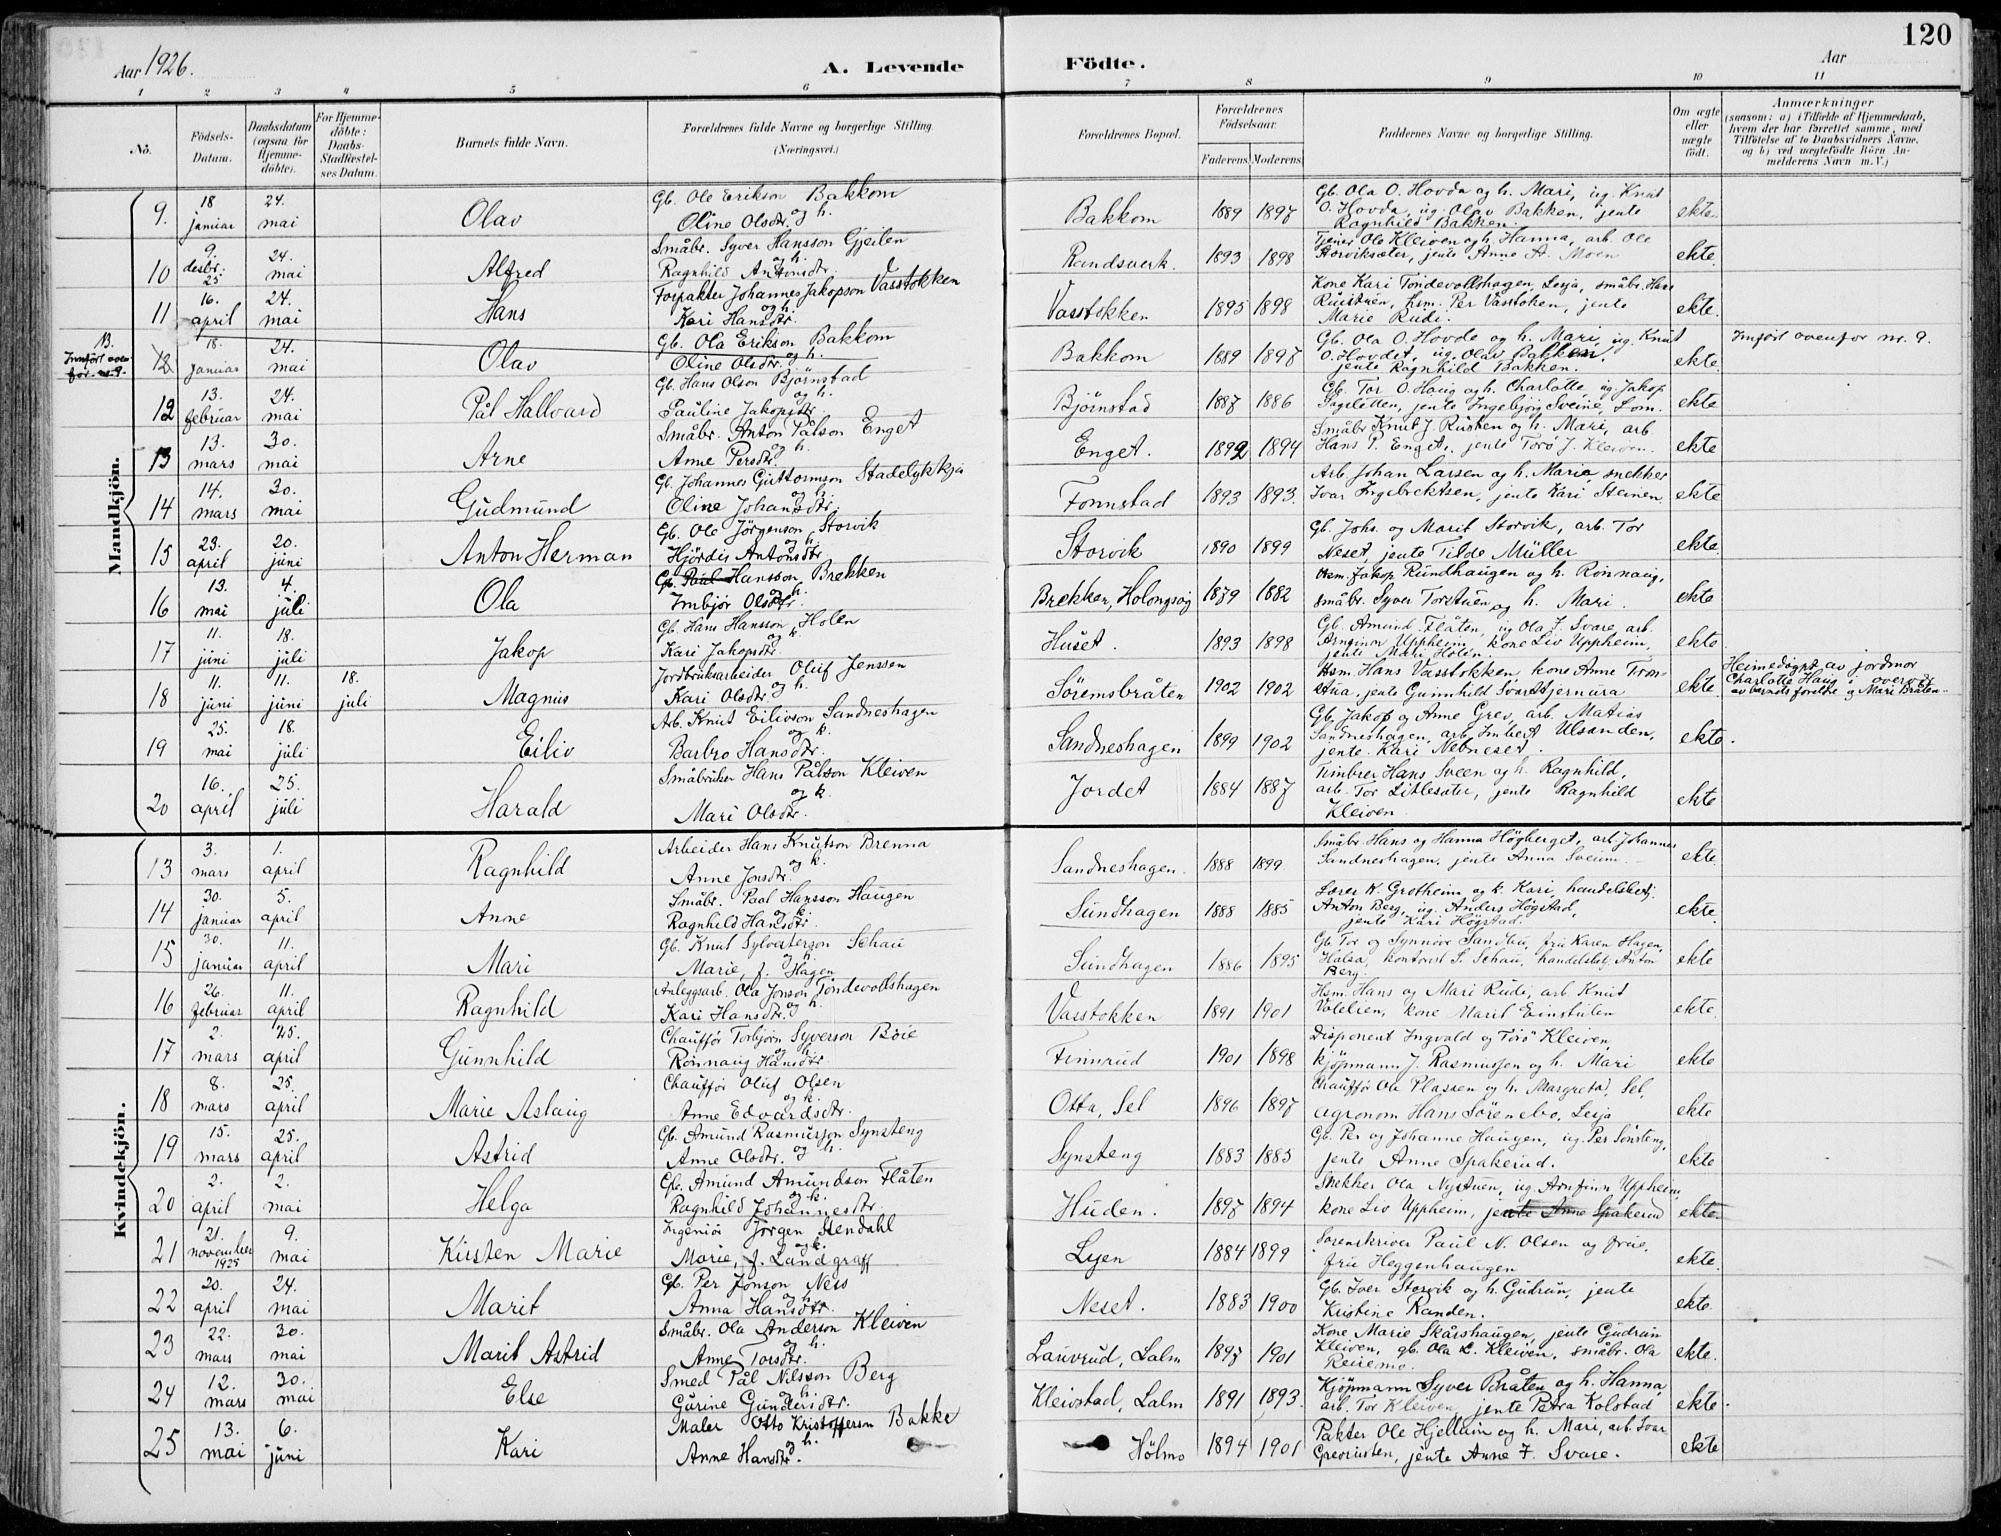 120
Aar 1926.
A. Levende
Födte.
Aar
1 2 3 4 5 6 7 8 9 10 11
No.
Födsels-Datum.
Daabsdatum (ogsaa for Hjemmedöbte).
For Hjemmedöbte: Daabs-Stadfæstelses Datum.
Barnets fulde Navn.
Forældrenes fulde Navne og borgerlige Stilling. (Næringsvei.)
Forældrenes Bopæl.
Forældrenes Födselsaar.
Faderens. Moderens.
Faddernes Navne og borgerlige Stilling.
Om ægte eller uægte födt.
Anmærkninger
(saasom: a) i Tilfælde af Hjemmedaab, hvem der har forrettet samme, med Tilföielse af to Daabsvidners Navne, og b) ved uægtefödte Börn Anmelderens Navn m. V.)
Mandkjön.
9 18 januar 24. mai Olav Gb. Ole Erikson Bakkom og h. Oline Olsdtr. Bakkom 1889 1897 Gb. Ola O. Hovda og h. Mari, ug. Knut O. Hovda, ug. Olav Bakken, jente Ragnhild Bakken ekte
10 9. desbr. 25 24. mai Alfred Småbr. Syver Hansson Gjeilen og h. Ragnhild Antonsdtr. Randsverk 1893 1898 Tjener Ole Kleiven og h. Hanna, arb. Ole Storviksæter, jente Anne A. Moen ekte.
11 16. april 24. mai Hans Forpakter Johannes Jakopson Vasstokken og h. Kari Hansdtr. Vasstokken 1895 1898 Kone Kari Töndevollshagen, Lesja, småbr. Hans Rüistuen, hsm. Per Vasstoken, jente Marie Rudi. ekte.
13. Innfört ovenfor nr. 9.
12 18. januar 24. mai Olav Gb. Ola Erikson Bakkom og h. Oline Olsdtr. Bakkom 1889 1897 Gb. Ola O. Hovde og h. Mari, ug. Knut O. Hovdet, ug. Olav Bakken, jente Ragnhild Bakken. ekte Innfört ovenfor nr. 9.
12 13. februar 24. mai Pål Hallvard Gb. Hans Olson Björnstad og h. Pauline Jakopsdtr. Björnstad 1887 1886 Gb. Tor O. Haug og h. Charlotte, ug. Jakop Sagsletten, jente Ingebjörg Sveine, Lom. ekte
13 13. mars 30. mai Arne Småbr. Anton Pålson Enget og h. Anne Persdtr. Enget. 1892 1894 Småbr. Knut J. Rusten og h. Mari, arb. Hans P. Enget, jente Torö J. Kleiven. ekte
14 14. mars 30. mai Gudmund Gb. Johannes Guttormson Stadelykkja og h. Oline Johansdtr. Formstad 1893 1893. Arb Johan Larsen og h. Marie, snekker Ivar Ingebrektsen, jente Kari Steinen. ekte
15 23. april 20. juni Anton Herman Gb. Ole Jörgenson Storvik og h. Hjördis Antonsdtr. Storvik 1890 1899 Gb. Johs. og Marit Storvik, arb. Tor Neset, jente Tilde Müller ekte
16 13. mai 4. juli Ola Gb. Paul Hansson Brekken og h. Imbjör Olsdtr. Brekken, Holongsøy 1879 1882 Hsm. Jakop Rundhaugen og h. Rönnaug, småbr. Syver Torstuen og h. Mari. ekte
17 11. juni 18. juli Jakop Gb. Hans Hansson Holen og k. Kari Jakopsdtr. Huset. 1893 1898 Gb. Amund Flåten, ug Ola J. Svare, arb. Arnfinn Uppheim, kone Liv Uppheim, jente Mari Holen. ekte
18 11. juni 11. juni 18. juli Magnus Jordbruksarbeider Oluf Jenssen og h. Kari Olsdtr. Söremsbråten 1902 1902 Hsm. Hans Vasstokken, kone Anne Tronstua, jente Gunnhild Svarttjernura ekte Heimedöypt av jordmor Charlotte Haug i overvær av barnets foreldre og Mari Bråten.
19 25. mai 18. juli Eiliv Arb. Knut Eilivson Sandneshagen og k. Barbro Hansdtr. Sandneshagen 1899 1902 Gb. Jakop og Anne Grev, arb. Matias Sandneshagen, arb. Imbert Ulsanden, jente Kari Nebneset. ekte.
20 16. april 25. juli Harald Småbruker Hans Pålson Kleiven og k. Mari Olsdtr. Jordet 1884 1887 Timbrer Hans Sveen og h. Ragnhild, arb. Tor Litlesæter, jente Ragnhild Kleiven ekte
Kvindekjön.
13 3. mars 1. april Ragnhild Arbeider Hans Knutson Brenna og k. Anne Jonsdtr. Sandneshagen. 1888 1899 Småbr Hans og Hanna Högberget, arb Johannes Sandneshagen, jente Anna Sveum. ekte
14 30. januar 5. april Anne Småbr. Paal Hansson Haugen og k. Ragnhild Hansdtr. Sundhagen 1888 1885 Lærer K. Grotheim og k. Kari, handelsbetj. Anton Berg, ug. Anders Högstad, jente Kari Högstad. ekte.
15 30. januar 11. april Mari Gb. Knut Sylvesterson Schau og h. Marie, f. Hagen Sundhagen 1886 1895 Gb. Tor og Synnöve Sandbu, frü Karen Hagen, Halsa, kontorist S. Schau, handelsbetj. Anton Berg. ekte
16 26. februar 11. april Ragnhild Anleggsarb. Ola Jonson Töndevollshagen og h. Kari Hansdtr. Vasstokken 1891 1901 Hsm. Hans og Mari Rudi, arb. Knut Volelien, kone Marit Einstulen ekte.
17 2. mars 25. april Gunnhild Chauffør Torbjörn Syverson Böie og h. Rönnaug Hansdtr. Finnrud 1901 1898 Disponent Ingvald og Torö Kleiven, kjöpmann J. Rasmussen og h. Mari ekte
18 8. mars 25. april Marie Aslaug Chauffør Oluf Olsen og k. Anne Edvardsdtr. Otta, Sel 1896 1897 Chauffør Ola Plassen og h. Margreta, Sel, agronom Hans Sörenebo, Lesja ekte
19 15. mars 25. april Astrid Gb. Amund Rasmusson Synsteng og h. Anne Olsdtr. Synsteng 1883 1885 Gb. Per og Johanne Haugen, ug. Per Synsteng, jente Anne Spakerud. ekte
20 2. april 2. mai Helga Gb. Amund Amundson Flåten og k. Ragnhild Johannesdtr. Huden. 1897 1894 Snekker Ola Nystuen, ug. Arnfinn Uppheim, kone Liv Uppheim, jente Anne Spakerud ekte.
21 21. november 1925 9. mai Kirsten Marie Ingeniör Jörgen Stendahl og k. Marie, f. Landgraff Lyen 1884 1899 Sorenskriver Paul N. Olsen og frue, fru Heggenhaugen ekte.
22 20. april 24. mai Marit Gb. Per Jonson Ness og h. Anna Hansdtr. Neset. 1883 1900 Gb. Iver Storvik og h. Gudrun, jente Kristine Randen. ekte.
23 22. mars 30. mai Marit Astrid Småbr. Ola Anderson Kleiven og h. Anne Torsdtr. Lauvrud, Lalm 1897 1901 Kone Marie Skårshaugen, jente Gudrun Kleiven, gb. Ola L. Kleiven, småbr. Ola Reiremo. ekte.
24 12. mars 30. mai Else Smed Pål Nilsson Berg og h. Gurine Gundersdtr. Kleivstad, Lalm 1891 1893. Kjöpmann Syver Bråten og h. Hanna, arb. Tor Kleiven, jente Petra Kolstad ekte.
25 13. mai 6. juni Kari Maler Otto Kristofferson Bakke og h. Anne Hansdtr. Hölmo 1894 1901 Pakter Ole Hjellum og h. Mari, arb. Ivar Greoriusten, jente Anne J. Svare. ekte